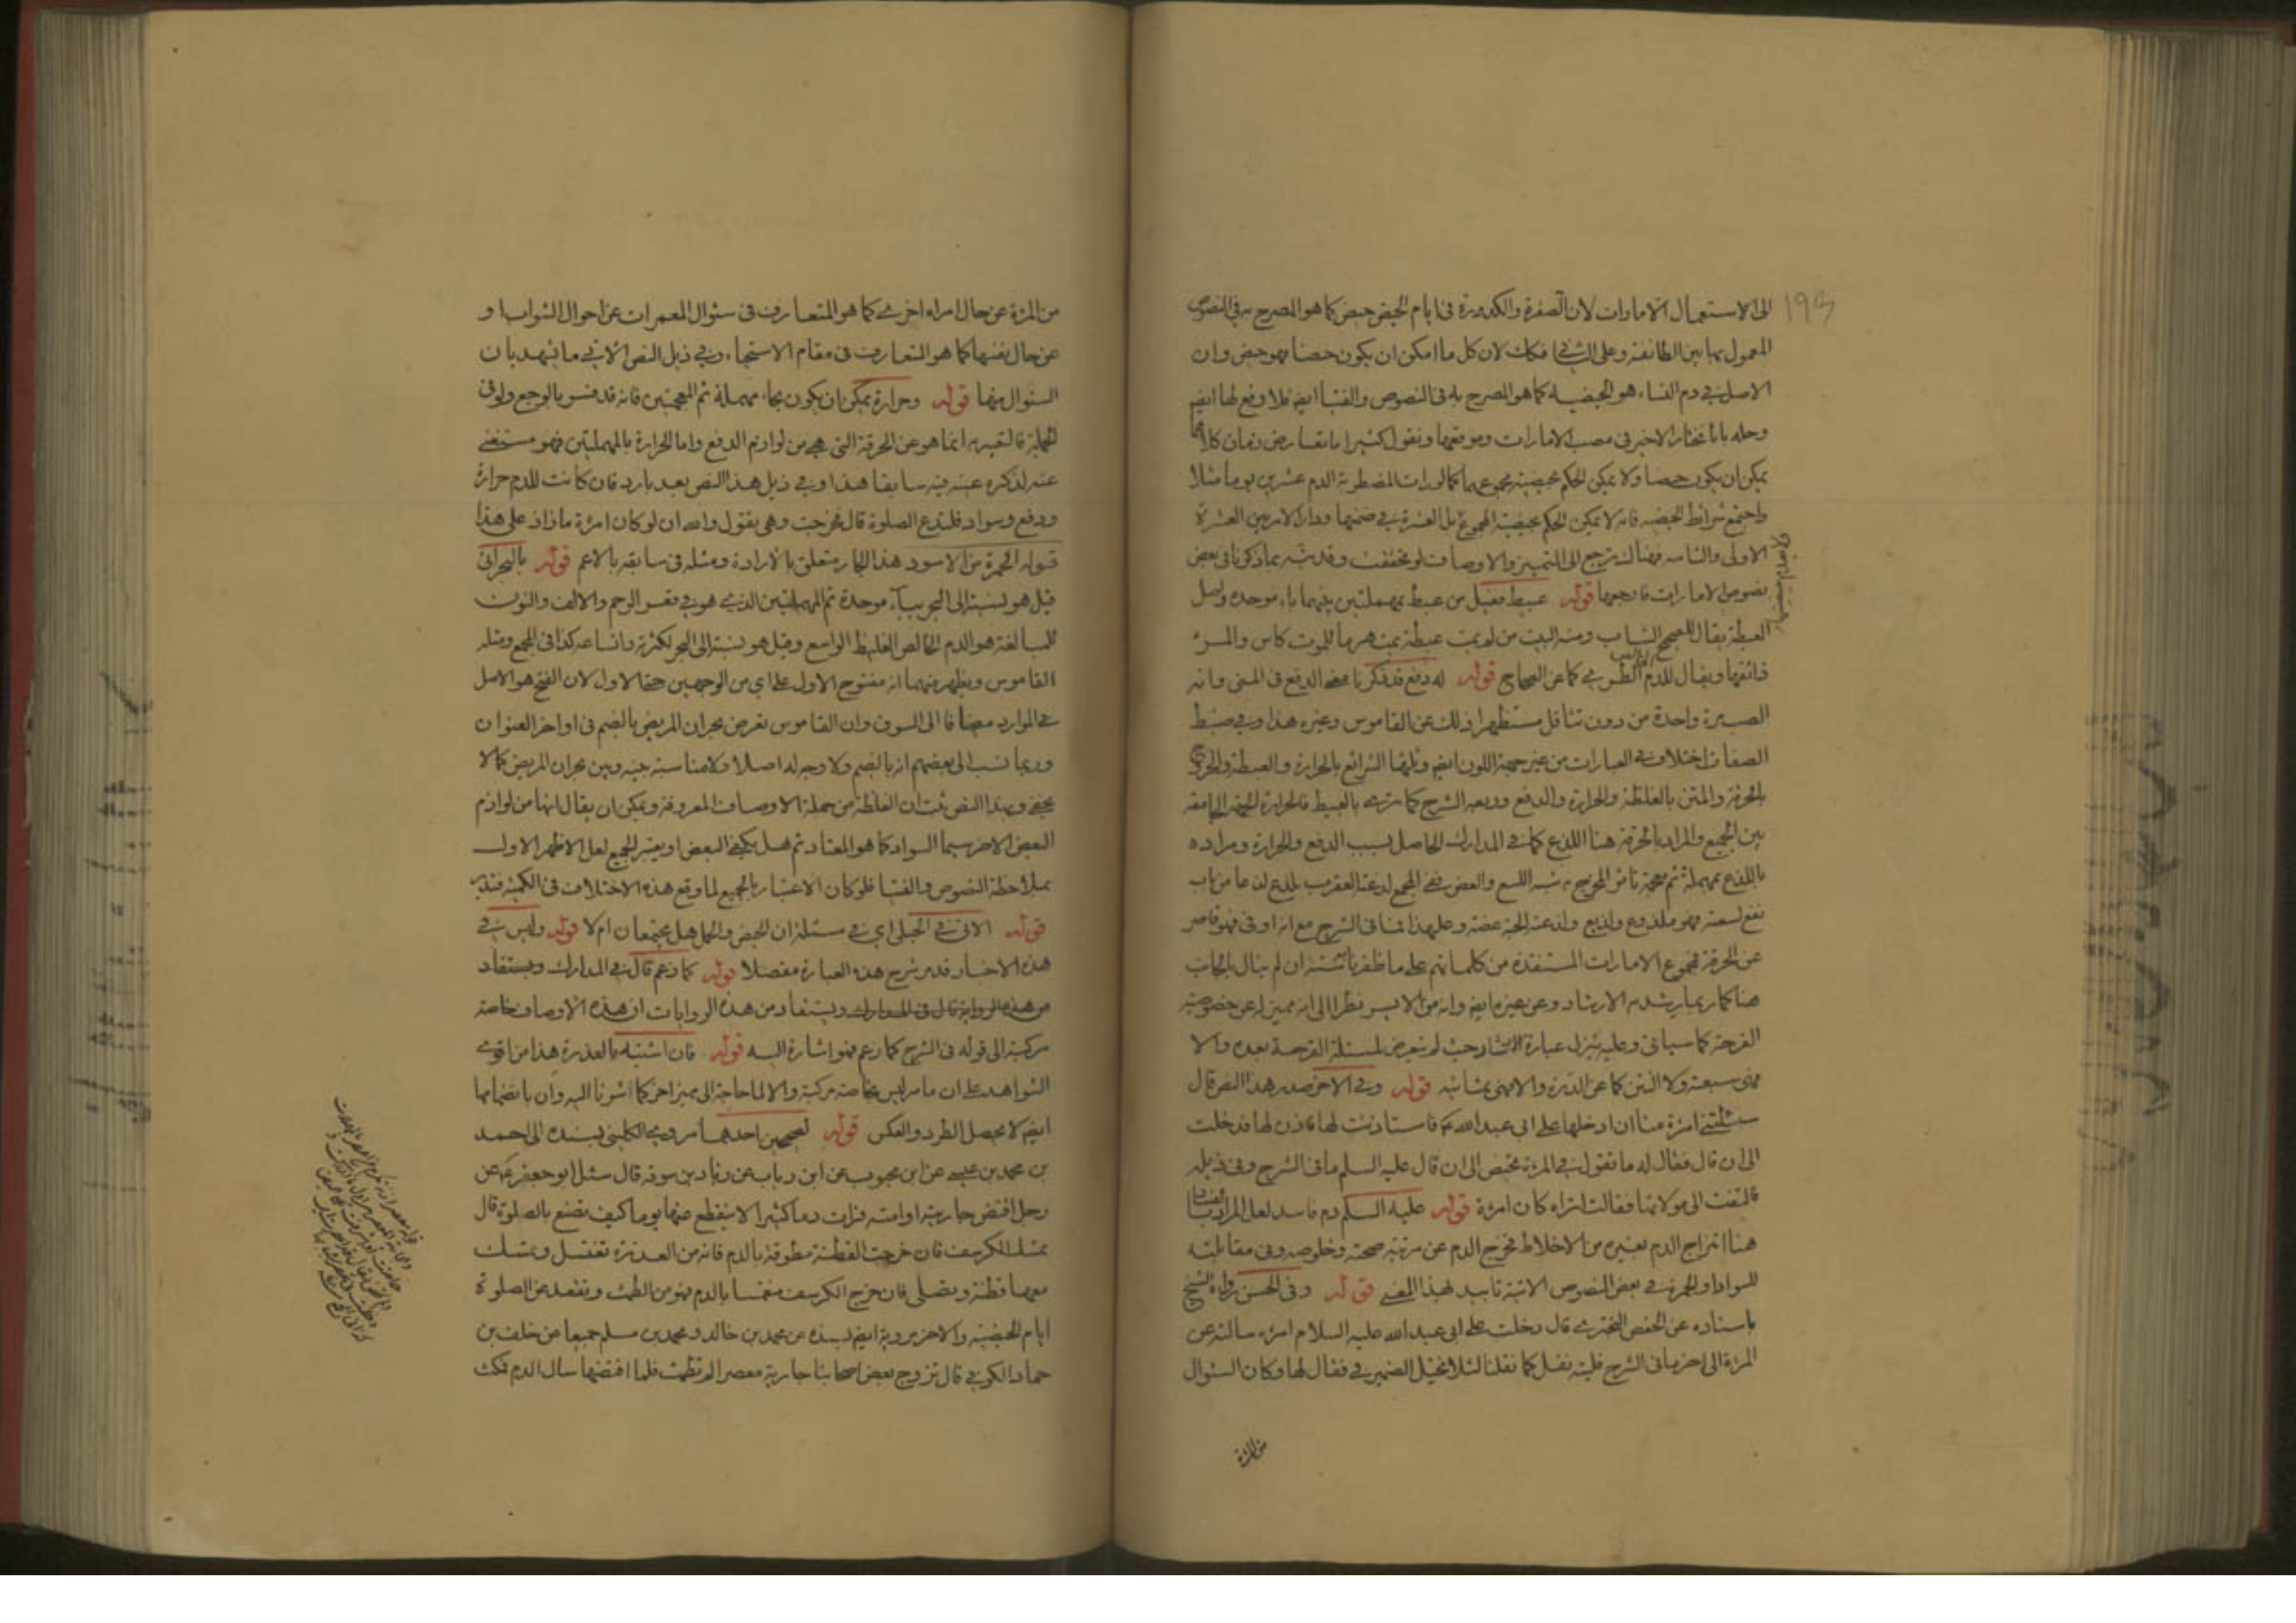 193
الى الاستعمال الامارات لان الصفرة والكدورة فى ايام الحيض حيض كما هو المصرح به فى النصوص
المعمول بها بين الطائفة وعلى الثانى فكك لان كل ما امكن ان يكون حيضا فهو حيض وان
الاصل فى دم النساء هو الحيضية كما هو المصرح به فى النصوص والفتيا ايضا فلا وقع لها ايضا
وحله بانا نختار الاخير فى مصب الامارات وموقعها ونقول كثيرا ما تعارض دمان كلاهما
يمكن ان يكون حيضا ولا يمكن الحكم بحيضية مجموعهما كما لو رات المضطربة الدم عشرين يوما مثلا
واجتمع شرائط الحيضية فانه لا يمكن الحكم بحيضية المجموع بل العشرة فى ضمنها ودار الامر بين العشرة
الاولى والثانية فهنالك يرجع الى التمييز والاوصاف لو تحققت وقد نبه بما ذكرنا فى بعض
نصوص الامارات فارجعها قوله عبيط فعيل من عبط بمهملتين بينهما باء موحدة ولعل
العبطة يقال للصحيح الشاب ومنه البيت من لم يمت عبطة يمت هرما للموت كاس والمرء
ذائقها ويقال للدم الطرى كما عن الصحاح قوله له دفع قد ذكرنا معنى الدفع فى المنى وانه
الصبرة واحدة من دون تثاقل مستظهرا ذلك عن القاموس وغيره هذا وفى ضبط
الصفات اختلاف فى العبارات من غير جهة اللون ايضا وثلثها الشرائع بالحرارة والعبطة والخروج
بالحرقة والمتن بالغلظة والحرارة والدفع وربعه الشرح كما ترى بالعبيط فالحرارة الجامعة
بين الجميع والمراد بالحرقة هنا اللذع كما فى المدارك الحاصل بسبب الدفع والحرارة ومراده
باللذع بمهملة ثم معجمة تاثر المخرج به شبه اللسع والعض ففى المجمع لدغته العقرب يلدغ لدغا من باب
نفع لسعته فهو ملدوغ ولديغ ولدغته الحية عضته وعليهذا فما فى الشرح مع انه اوفى فهو قاصر
عن الحرقة فمجموع الامارات المستفادة من كلماتهم على ما ظفرنا ستة ان لم يبال بالجانب
هنا كما ربما يرشد به الارشاد وعن غيره ايضا وانه من الايسر نظرا الى انه مميز له عن خصوصية
القرحة كما سياتى وعليه ينزل عبارة الارشاد حيث لم يتعرض لمسئلة القرحة بعده والا
فهى سبعة ولا النتن كما عن الدرة والا فهى ثمانية قوله وفى الاخر صدر هذا النص قال
سئلتنى امرئة منا ان ادخلها على ابى عبد الله ع فاستاذنت لها فاذن لها فدخلت
الى ان قال فقال له ما تقول فى المرئة تحيض الى ان قال عليه السلم ما فى الشرح وفى ذيله
فالتفت الى مولاتها فقالت اتراه كان امرئة قوله عليه السلم دم فاسد لعل المراد
هنا امتزاج الدم بغيره من الاخلاط فخرج الدم عن مرتبة صحته وخلوصه وفى مقابلته
للسواد او الحمرة فى بعض النصوص الاتية تاييد لهذا المعنى قوله وفى الحسن رواه الشيخ
باسناده عن الحفص البخترى قال دخلت على ابى عبد الله عليه السلام امرئة سالته عن
المرئة الى اخر ما فى الشرح فليته نقل كما نقلنا لئلا يختل الضمير فى فقال لها وكان السئوال
من المرئة
من المرئة عن حال امراة اخرى كما هو المتعارف فى سئوال المعمرات عن احوال الشواب او
عن حال نفسها كما هو المتعارف فى مقام الاستحياء وفى ذيل النص الاتى ما يشهد بان
السئوال منها قوله وحرارة يمكن ان يكون بحاء مهملة ثم المعجمتين فانه قد فسر بالوجع ولو فى
الجملة فالتعبير به انما هو عن الحرقة التى هى من لوازم الدفع واما الحرارة بالمهملتين فهو مستغنى
عنه لذكره عينه فيه سابقا هذا وفى ذيل هذا النص بعد بارد فان كانت للدم حرارة
ودفع وسواد فلتدع الصلوة قال فخرجت وهى تقول والله ان لو كان امرئة ما زاد على هذا
قوله الحمرة من الاسود هذا الجار متعلق بالارادة ومثله فى سابقه بالاعم قوله بالبحرانى
قيل هو نسبة الى البحر بباء موحدة ثم المهملتين الذى هو فى قعر الرحم والالف والنون
للمبالغة هو الدم الخالص الغليظ الواسع وقيل هو نسبة الى البحر لكثرته واتساعه كذا فى المجمع ومثله
القاموس ويظهر منهما انه مفتوح الاول على اى من الوجهين حقا الاول لان الفتح هو الاصل
فى الموارد مضافا الى السوق وان القاموس تعرض بحران المريض بالضم فى اواخر العنوان
وربما نسب الى بعضهم انه بالضم ولا وجه له اصلا ولا مناسبة بينه وبين بحران المريض كما لا
يخفى وبهذا النص ثبت ان الغلظة من جملة الاوصاف المعروفة ويمكن ان يقال انها من لوازم
البعض الاخر سيما السواد كما هو المعتاد ثم هل يكفى البعض او يعتبر الجميع لعل الاظهر الاول
بملاحظة النصوص والفتيا فلو كان الاعتبار بالجميع لما وقع هذه الاختلاف فى الكمية فتدبر
قوله الاتى فى الحبلى اى فى مسئلة ان الحيض والحمل هل يجتمعان ام لا قوله وليس فى
هذه الاخبار قد مر شرح هذه العبارة مفصلا قوله كما زعم قال فى المدارك ويستفاد
من هذه الرواية قال فى المدارك ويستفاد من هذه الروايات ان هذه الاوصاف خاصة
مركبة الى قوله فى الشرح كما زعم فهو اشارة اليه قوله فان اشتبه بالعذرة هذا من اقوى
الشواهد على ان ما مر ليس بخاصة مركبة والا لما حاجة الى مميز اخر كما اشرنا اليه وان بانضمامها
ايضا لا يحصل الطرد والعكس قوله لصحيحين احدهما مروى الكلينى بسنده الى احمد
بن محمد بن عيسى عن ابن محبوب عن ابن رباب عن زياد بن سوقه قال سئل ابو جعفر ع عن
رجل افتض جاريته او امته فرات دما كثيرا لا ينقطع عنها يوما كيف تصنع بالصلوة قال
تمسك الكرسف فان خرجت القطنة مطوقة بالدم فانه من العذرة تغتسل وتمسك
معها قطنة وتصلى فان خرج الكرسف منغمسا بالدم فهو من الطمث وتقعد عن الصلوة
ايام الحيضية والاخر مروية ايضا بسنده عن محمد بن خالد ومحمد بن مسلم جميعا عن خلف بن
حماد الكوفى قال تزوج بعض اصحابنا جارية معصرا لم تطمث فلما افتضها سال الدم فمكث